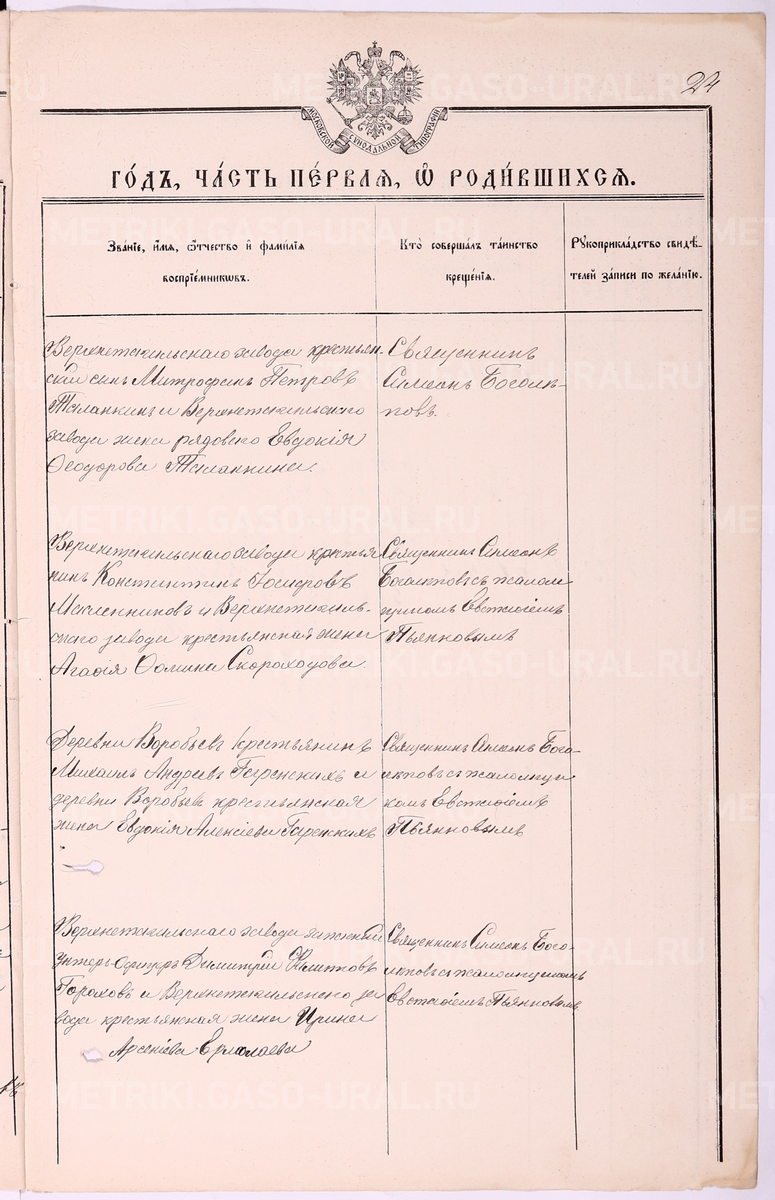 24
МОСКОВСКОЙ СѴНОДАЛЬНОЙ ТИПОГРАФІИ
ГО́ДЪ, ЧА́СТЬ ПЕ́РВАѦ, Ѽ РОДИ́ВШИХСѦ.
Зва́ніе, и́мѧ, ѻ҆́тчество и҆ фами́лїѧ
воспрїе́мникѡвъ.
Кто̀ соверша́лъ та́инство
креще́нїѧ.
Рꙋкоприкла́дство свидѣ́-
телей за́писи по жела́нїю.
Верхнетагильскаго завода крестьян-
скій сынъ Митрофанъ Петровъ
Таланкинъ и Верхнетагильскаго
завода жена рядоваго Евдокія
Ѳеодорова Таланкина.
Священникъ
Симеонъ Боголѣ-
повъ.
Верхнетагильскаго завода крестья
нинъ Константинъ
Масленниковъ и Верхнетагиль-
скаго завода крестьянская жена
Агафія Ѳомина Скороходова
Священникъ Симеонъ
Боголѣповъ съ псалом
щикомъ Евстафіемъ
Пьянковымъ
Деревни Воробьевъ крестьянинъ
Михаилъ Андреевъ и
деревни Воробьевъ крестьянская
жена Евдокія Алексіева
Священникъ Симеонъ Бого-
лѣповъ съ псаломщи
комъ Евстафіемъ
Пьянковымъ
Верхнетагильскаго завода запасный
унтеръ-офицеръ Димитрій Филиповъ
Гороховъ и Верхнетагильскаго за
вода крестьянская жена Ирина
Арсеніева Ермолаева
Священникъ Симеонъ Бого-
лѣповъ съ псаломщикомъ
Евстафіемъ Пьянковымъ
METRIKI.GASO-URAL.RU